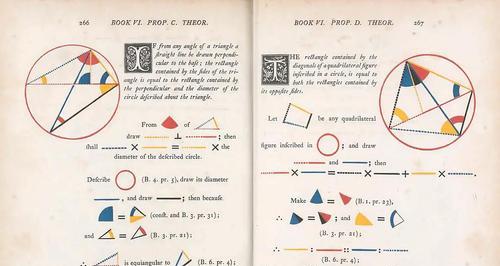 266 BOOK VI. PROP. C. THEOR.
IF from any angle of a triangle a
straight line be drawn perpendi-
cular to the base; the rectangle
contained by the sides of the tri-
angle is equal to the rectangle contained by
the perpendicular and the diameter of the
circle described about the triangle.
From of
draw ⊥ ; then
shall × = × the
diameter of the described circle.
Describe (B. 4. pr. 5), draw its diameter
, and draw ; then because
= (const. and B. 3. pr. 31);
and = (B. 3. pr. 21);
∴ is equiangular to (B. 6. pr. 4);
BOOK VI. PROP. D. THEOR. 267
THE rectangle contained by the
diagonals of a quadrilateral figure
inscribed in a circle, is equal to
both the rectangles contained by
its opposite sides.
Let be any quadrilateral
figure inscribed in ; and draw
and ; then
× = × + ×
Make = (B. 1. pr. 23),
∴ = ; and =
(B. 3. pr. 21);
∴ : :: :
(B. 6. pr. 4);